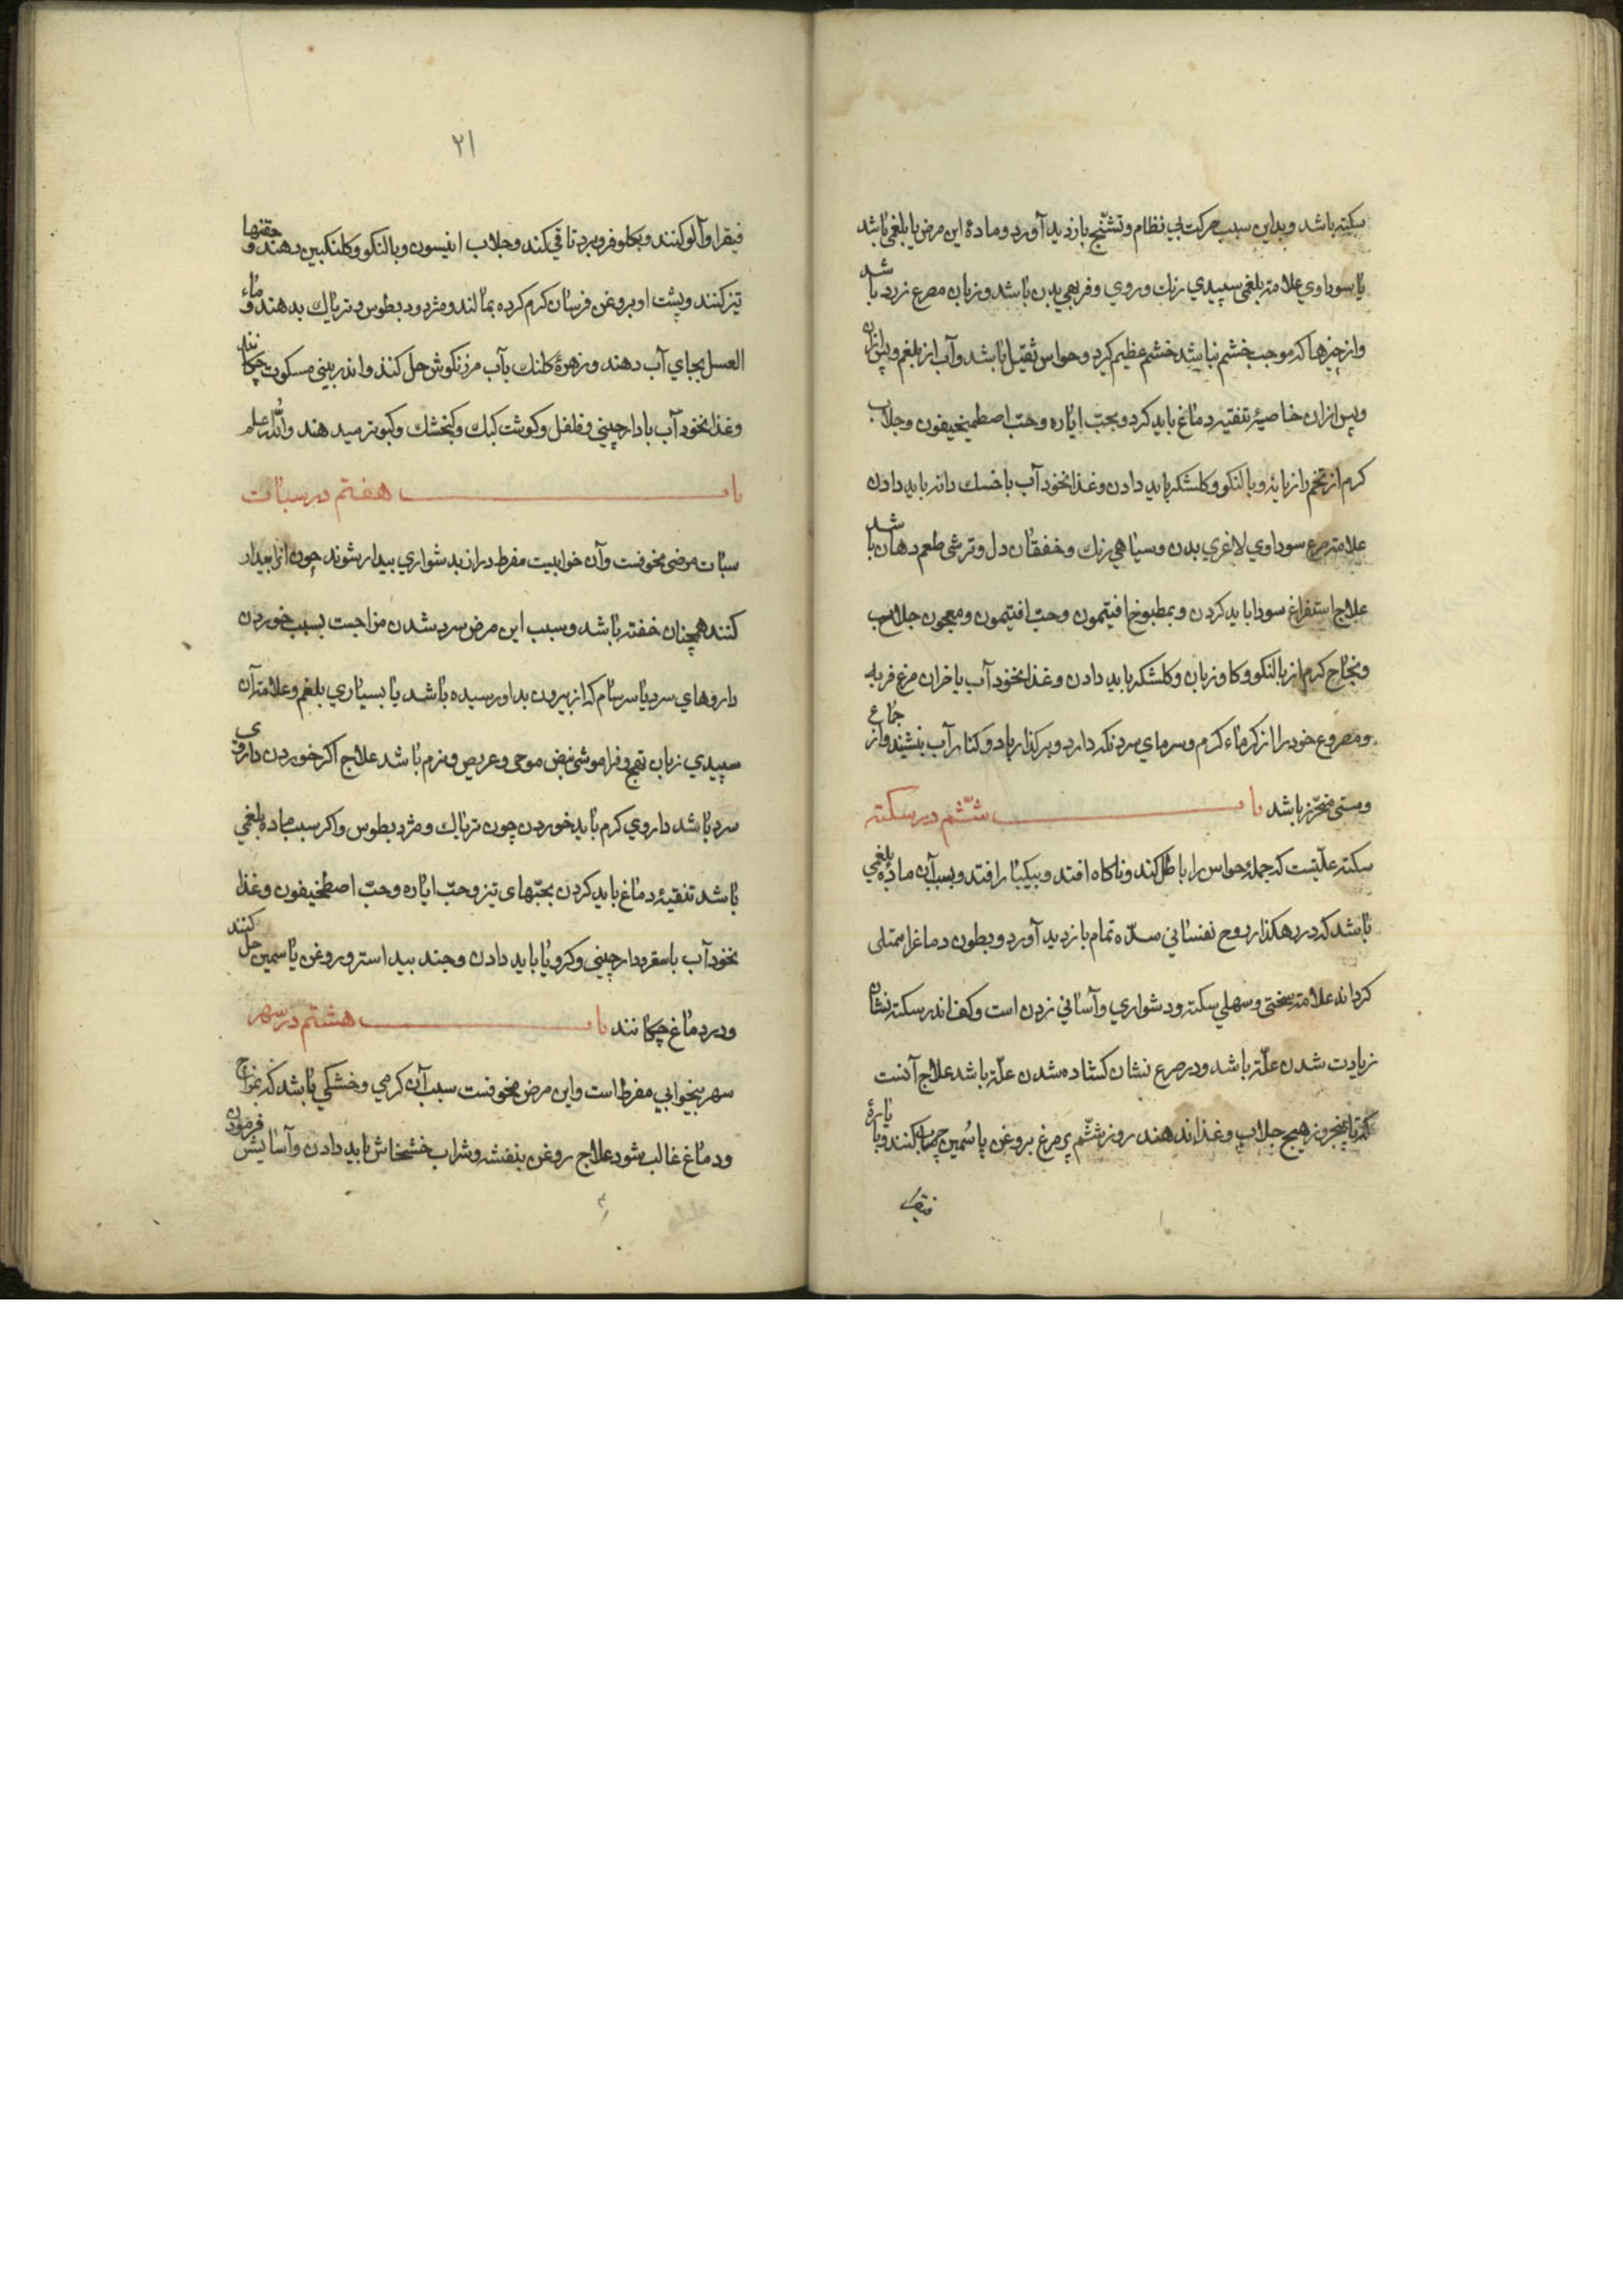 سکته باشد و بداین سبب حرکت بی نظام و تشنّج بازدید آورد و مادهٔ این مرض یا بلغمی باشد
یا سوداوی علامة بلغمی سپیدی رنك و روی و فربهی بدن باشد و زبان مصرع زرد باشد
و از چیزها که موجب خشم نباشد خشم عظیم کیرد و حواس ثقیل باشد و آب از بلغم و پس ازان
و پس ازان خاصیهٔ تنقیه دماغ باید کرد و بحبّ ایاره و حبّ اصطمخیفون و جلاب
کرم از تخم دازیانه و بالنکو و کلشکر باید دادن و غذا نخود آب با خسك دانه باید دادن
علامة صرع سوداوی لاغری بدن و سیاهی رنك و خفقان دل و ترشی طعم دهان باشد
علاج استفراغ سودا باید کردن و بمطبوخ افتیمون و حبّ افتیمون و معجون جلاب
و نجاح کرم از بالنکو و کاو زبان و کلشکر باید دادن و غذا نخود آب با خران مرغ فربه
و مصروع خود را از کرماء کرم و سرمای سرد نکه دارد و بر کذار باد و کنار آب ننشیند و از جماع
و مستی متحرّز باشد باب ششّم در سکته
سکته علّتیست که جملهٔ حواس را باطل کند و ناکاه افتد و بیکبار افتد و بسبب آن مادهٔ بلغمی
باشد که در رهکذار روح نفسانی سدّه تمام بازدید آورد و بطون دماغ را ممتلی
کرداند علامة سختی و سهلی سکته و دشواری و آسانی زدن است و کف اندر سکته نشان
زیادت شدن علّة باشد و در صرع نشان کشاده شدن علّة باشد علاج آنست
که تا پنج روز هیچ جلاب و غذا ندهند روز ششّم پر مرغ بروغن یاسمین چرب کنند و با یارهٔ
فیقرا
۲۱
فیقرا و آلو کنند و بکلو فرو برد تا قی کند و جلاب انیسون و بالنکو و کلنکبین دهند و حقنها
تیز کنند و پشت او بروغن فرسان کرم کرده بمالند و مثرودبطوس و تریاك بدهند و ماء
العسل بجای آب دهند و زهرهٔ کلنك بآب مرزنکوش حل کنند و اندر بینی مسکوت چکانند
و غذا نخود آب با دارچینی و فلفل و کوشت کبك و کنخشك و کبوتر میدهند و الله اعلم
باب هفتم در سبات
سبات مرضی مخوفست و آن خوابیست مفرط دران بدشواری بیدار شوند چون انرا بیدار
کنند همچنان خفته باشد و سبب این مرض سرد شدن مزاجست بسبب خوردن
داروهای سرد یا سرسام که از بیرون بداو رسیده باشد یا بسیاری بلغم و علامة آن
سپیدی زبان تهیج و فراموشی نبض موجی و عریض و نرم باشد علاج اکر خوردن داروی
سرد باشد داروی کرم باید خوردن چون تریاك و مثردبطوس و اکر سبب ماده بلغمی
باشد تنقیهٔ دماغ باید کردن بحبّهای تیز و حبّ ایاره و حبّ اصطمخیفون و غذا
نخود آب با سقر و دارچینی و کرویا باید دادن و جند بیداستر و روغن یاسمین حل کنند
و در دماغ چکانند باب هشتم در سهر
سهر بیخوابی مفرط است و این مرض مخوفست سبب آن کرمی و خشکی باشد که بمزاج
و دماغ غالب شود علاج روغن بنفشه و شراب خشخاش باید دادن و آسایش فرمودن